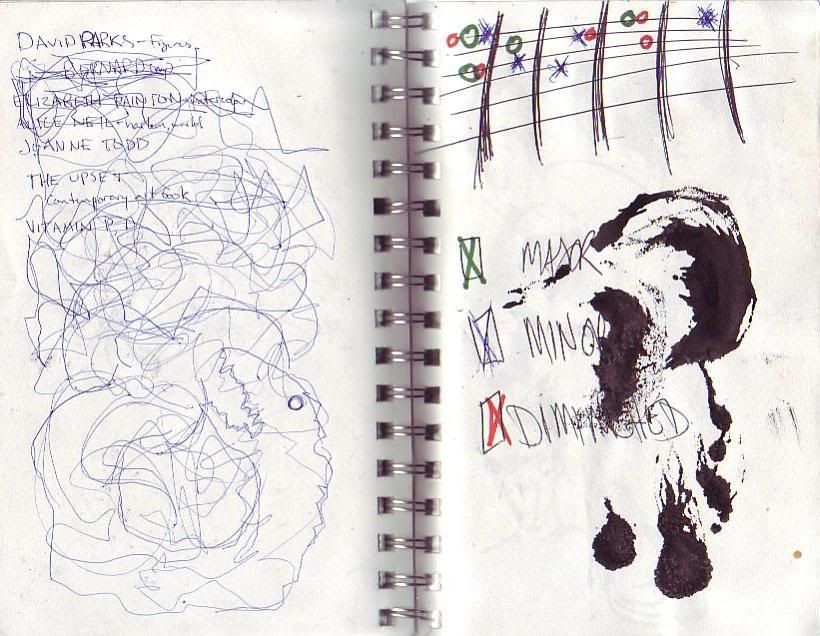 DAVID PARKS - Figures
BERNARD
ELIZABETH PAINTON
ALICE NEIL - harlem
JOANNE TODD
THE UPSET
Contemporary art book
VITAMIN P. D
MAJOR
MINOR
DIMINISHED